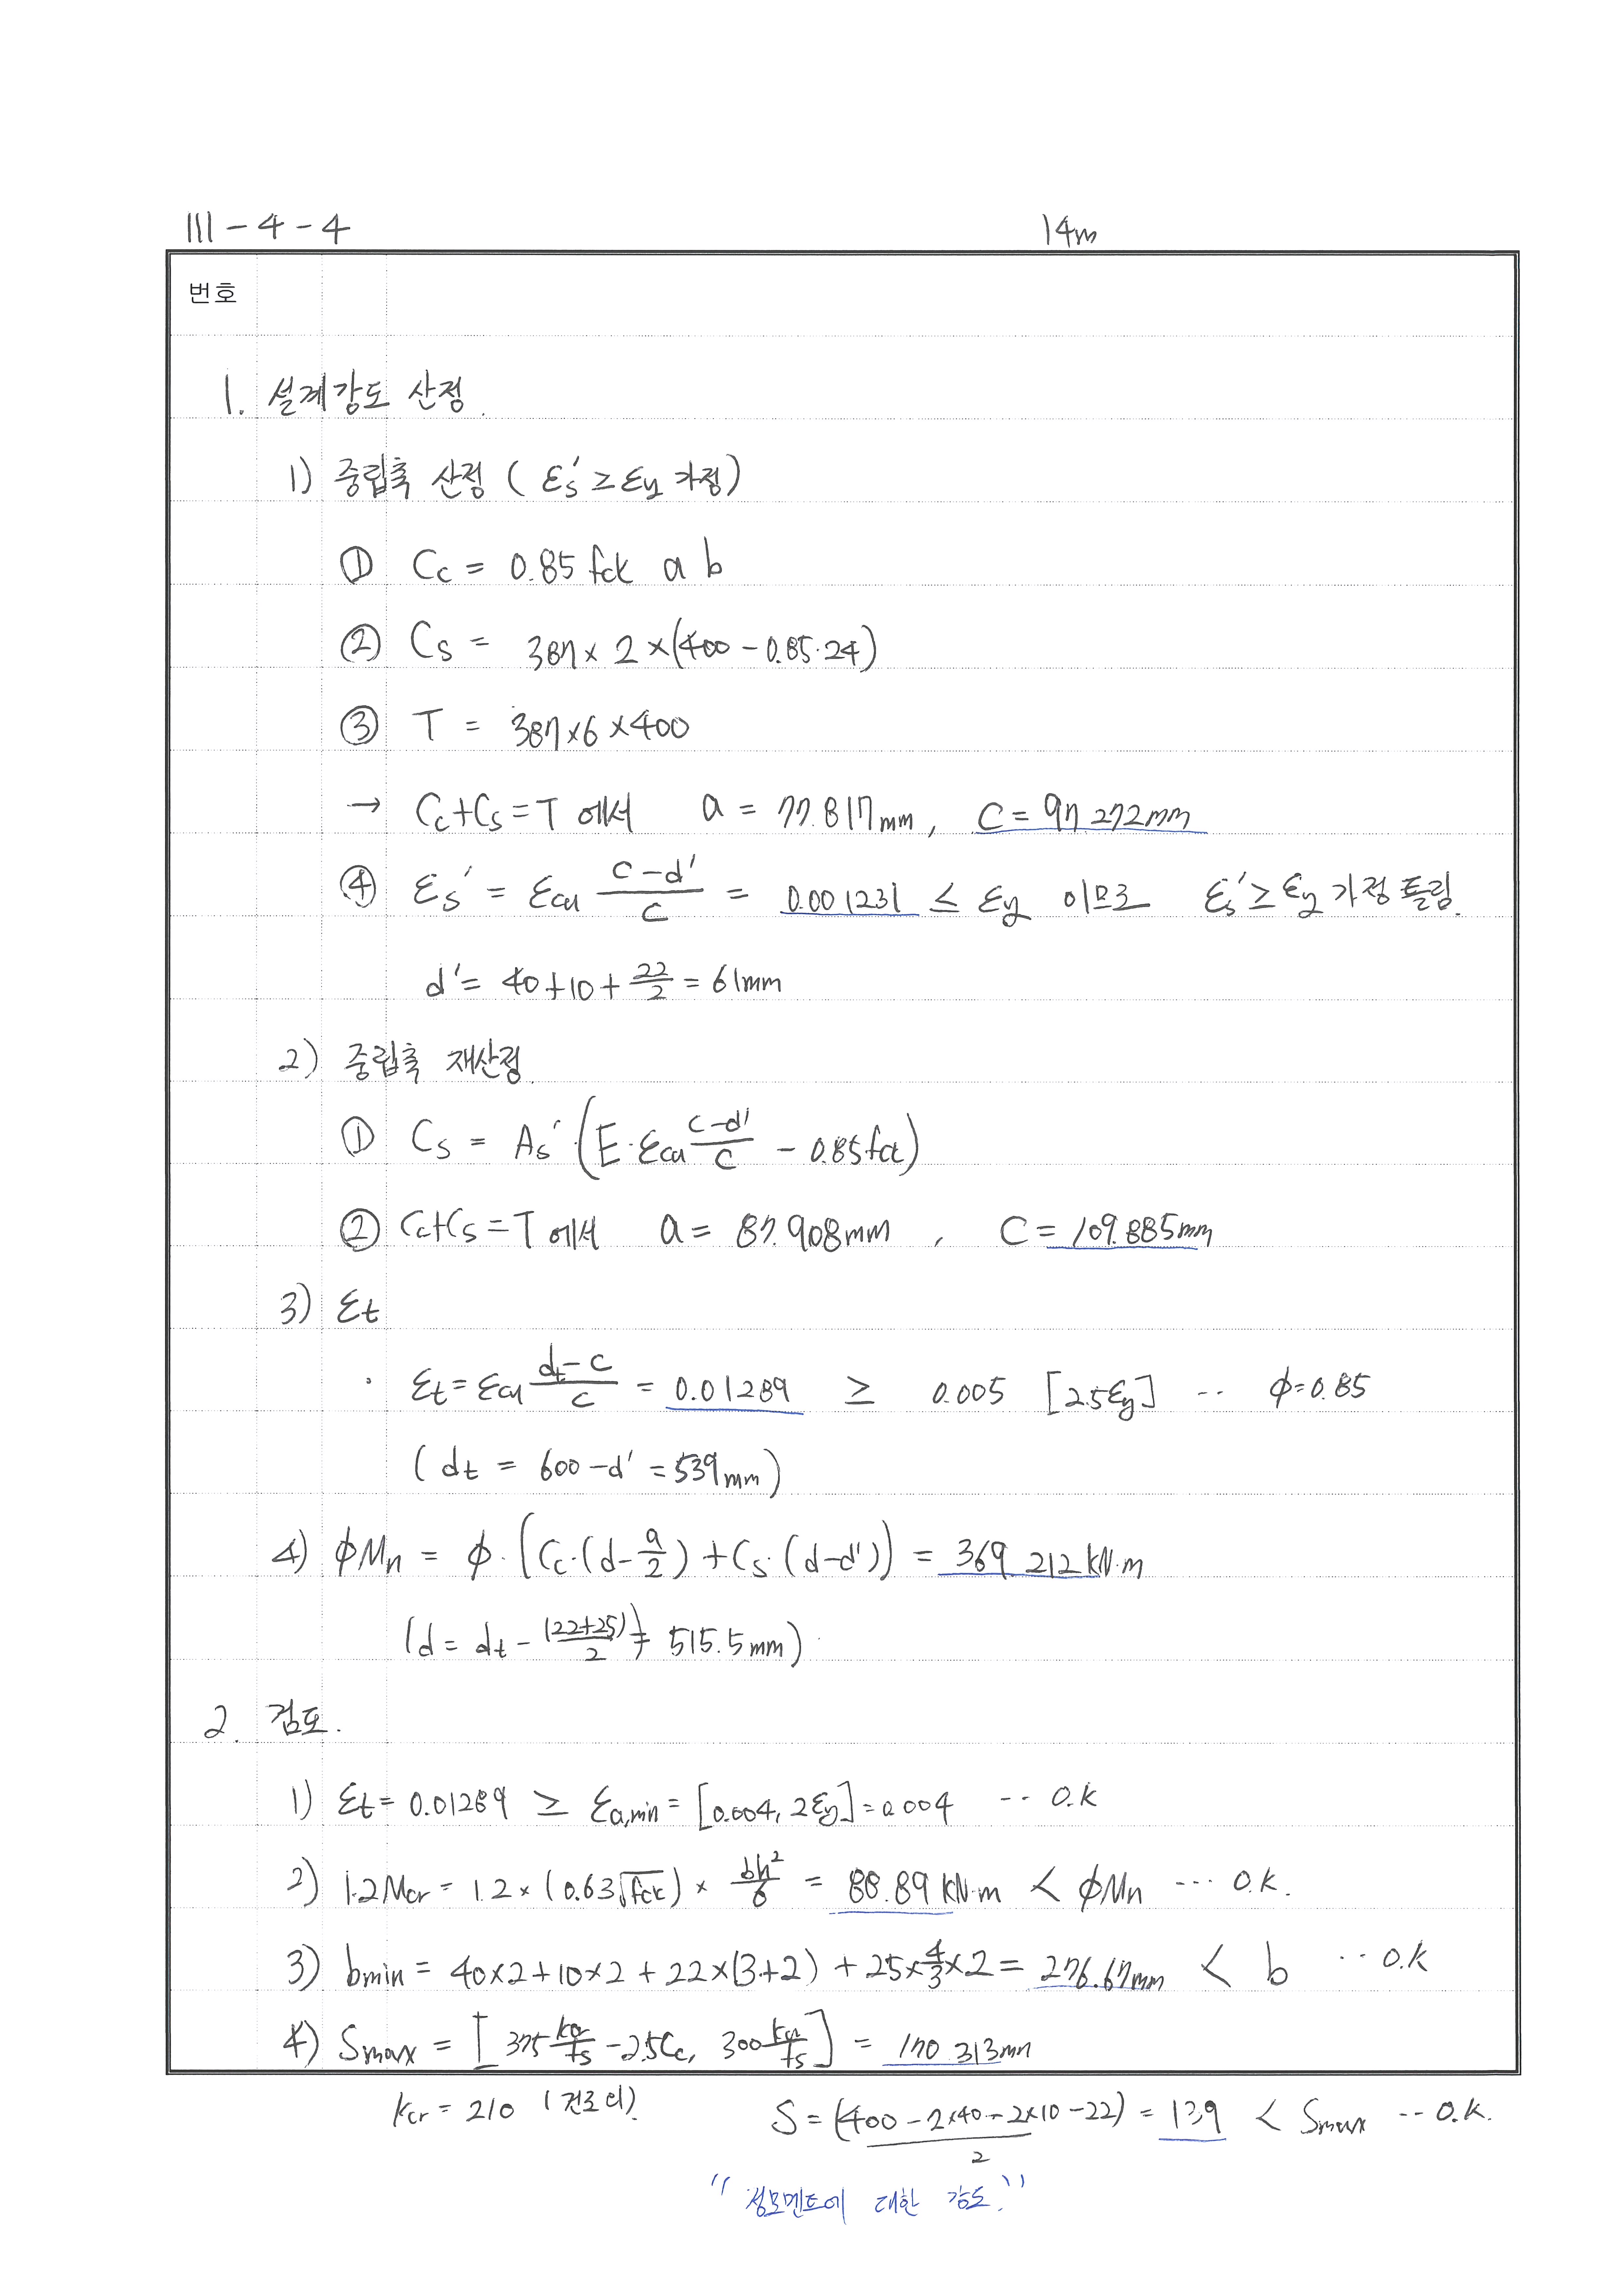 III - 4 - 4 14m
번호
1. 설계강도 산정.
1) 중립축 산정 ( εs' ≥ εy 가정)
① Cc = 0.85 fck a b
② Cs = 387 × 2 × (400 - 0.85·24)
③ T = 387×6×400
→ Cc+Cs = T 에서 a = 77.817mm, C = 97.272mm
④ εs' = εcu (c-d')/c = 0.001231 ≤ εy 이므로 εs' ≥ εy 가정 틀림.
d' = 40+10+22/2 = 61mm
2) 중립축 재산정.
① Cs = As'·(E·εcu (c-d')/c - 0.85fck)
② Cc+Cs = T 에서 a = 87.908mm, C = 109.885mm
3) εt
· εt = εcu (dt-c)/c = 0.01289 ≥ 0.005 [2.5εy] -- φ=0.85
( dt = 600-d' = 539mm )
4) φMn = φ·(Cc·(d-a/2) + Cs·(d-d')) = 369.212 kN·m
(d = dt - (22+25)/2 = 515.5mm)
2. 검토.
1) εt = 0.01289 ≥ εa,min = [0.004, 2εy] = 0.004 -- O.K
2) 1.2Mcr = 1.2 × (0.63√fck) × bh²/6 = 88.89 kN·m < φMn --- O.K.
3) bmin = 40×2+10×2+22×(3+2)+25×4/3×2 = 276.67mm < b -- O.K
4) Smax = [375 kcr/fs - 2.5Cc, 300 kcr/fs] = 170.313mm
kcr = 210 (건조 외) S = (400-2×40-2×10-22)/2 = 139 < Smax -- O.K.
"정모멘트에 대한 강도."